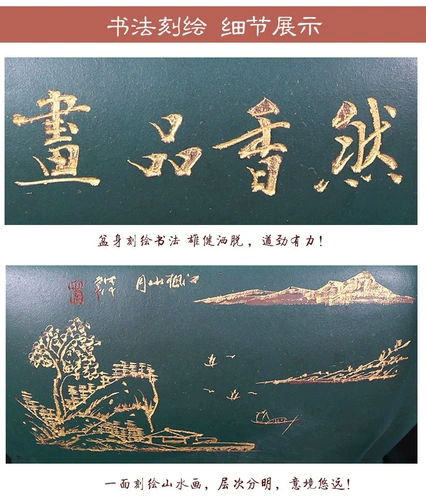 书法刻绘 细节展示
然香品畫
盆身刻绘书法 雄健洒脱，道劲有力！
一面刻绘山水画，层次分明，意境悠远！